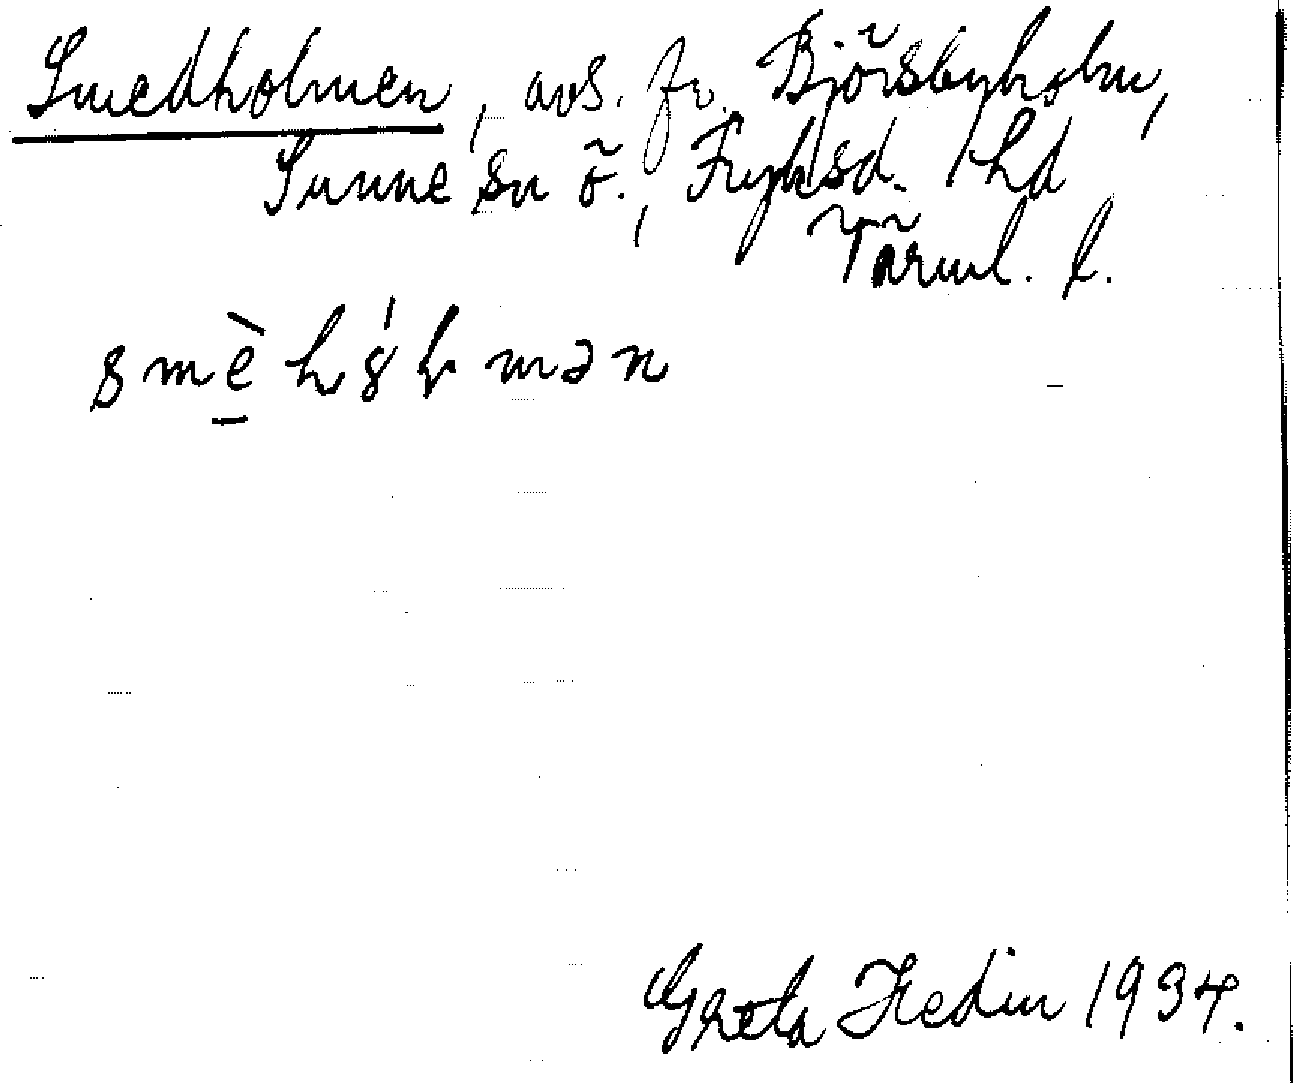 Smedholmen, avs. fr. Björsbyholm,
Sunne sn ö., Fryksd. hd
Värml. l.
Greta Hedin 1934.